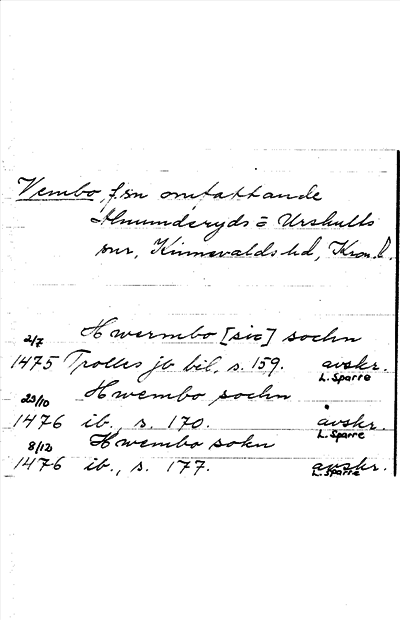 Vembo, f. sn omfattande
Almunderyds = Urshults
snr, Kinnevalds hd, Kron. l.
Hwermbo [sic] sochn
2/7
1475 Trolles jb bil, s. 159. avskr.
L. Sparre
Hwembo sochn
23/10
1476 ib., s. 170. avskr.
L. Sparre
Hwembo sokn
8/12
1476 ib., s. 177. avskr.
L. Sparre